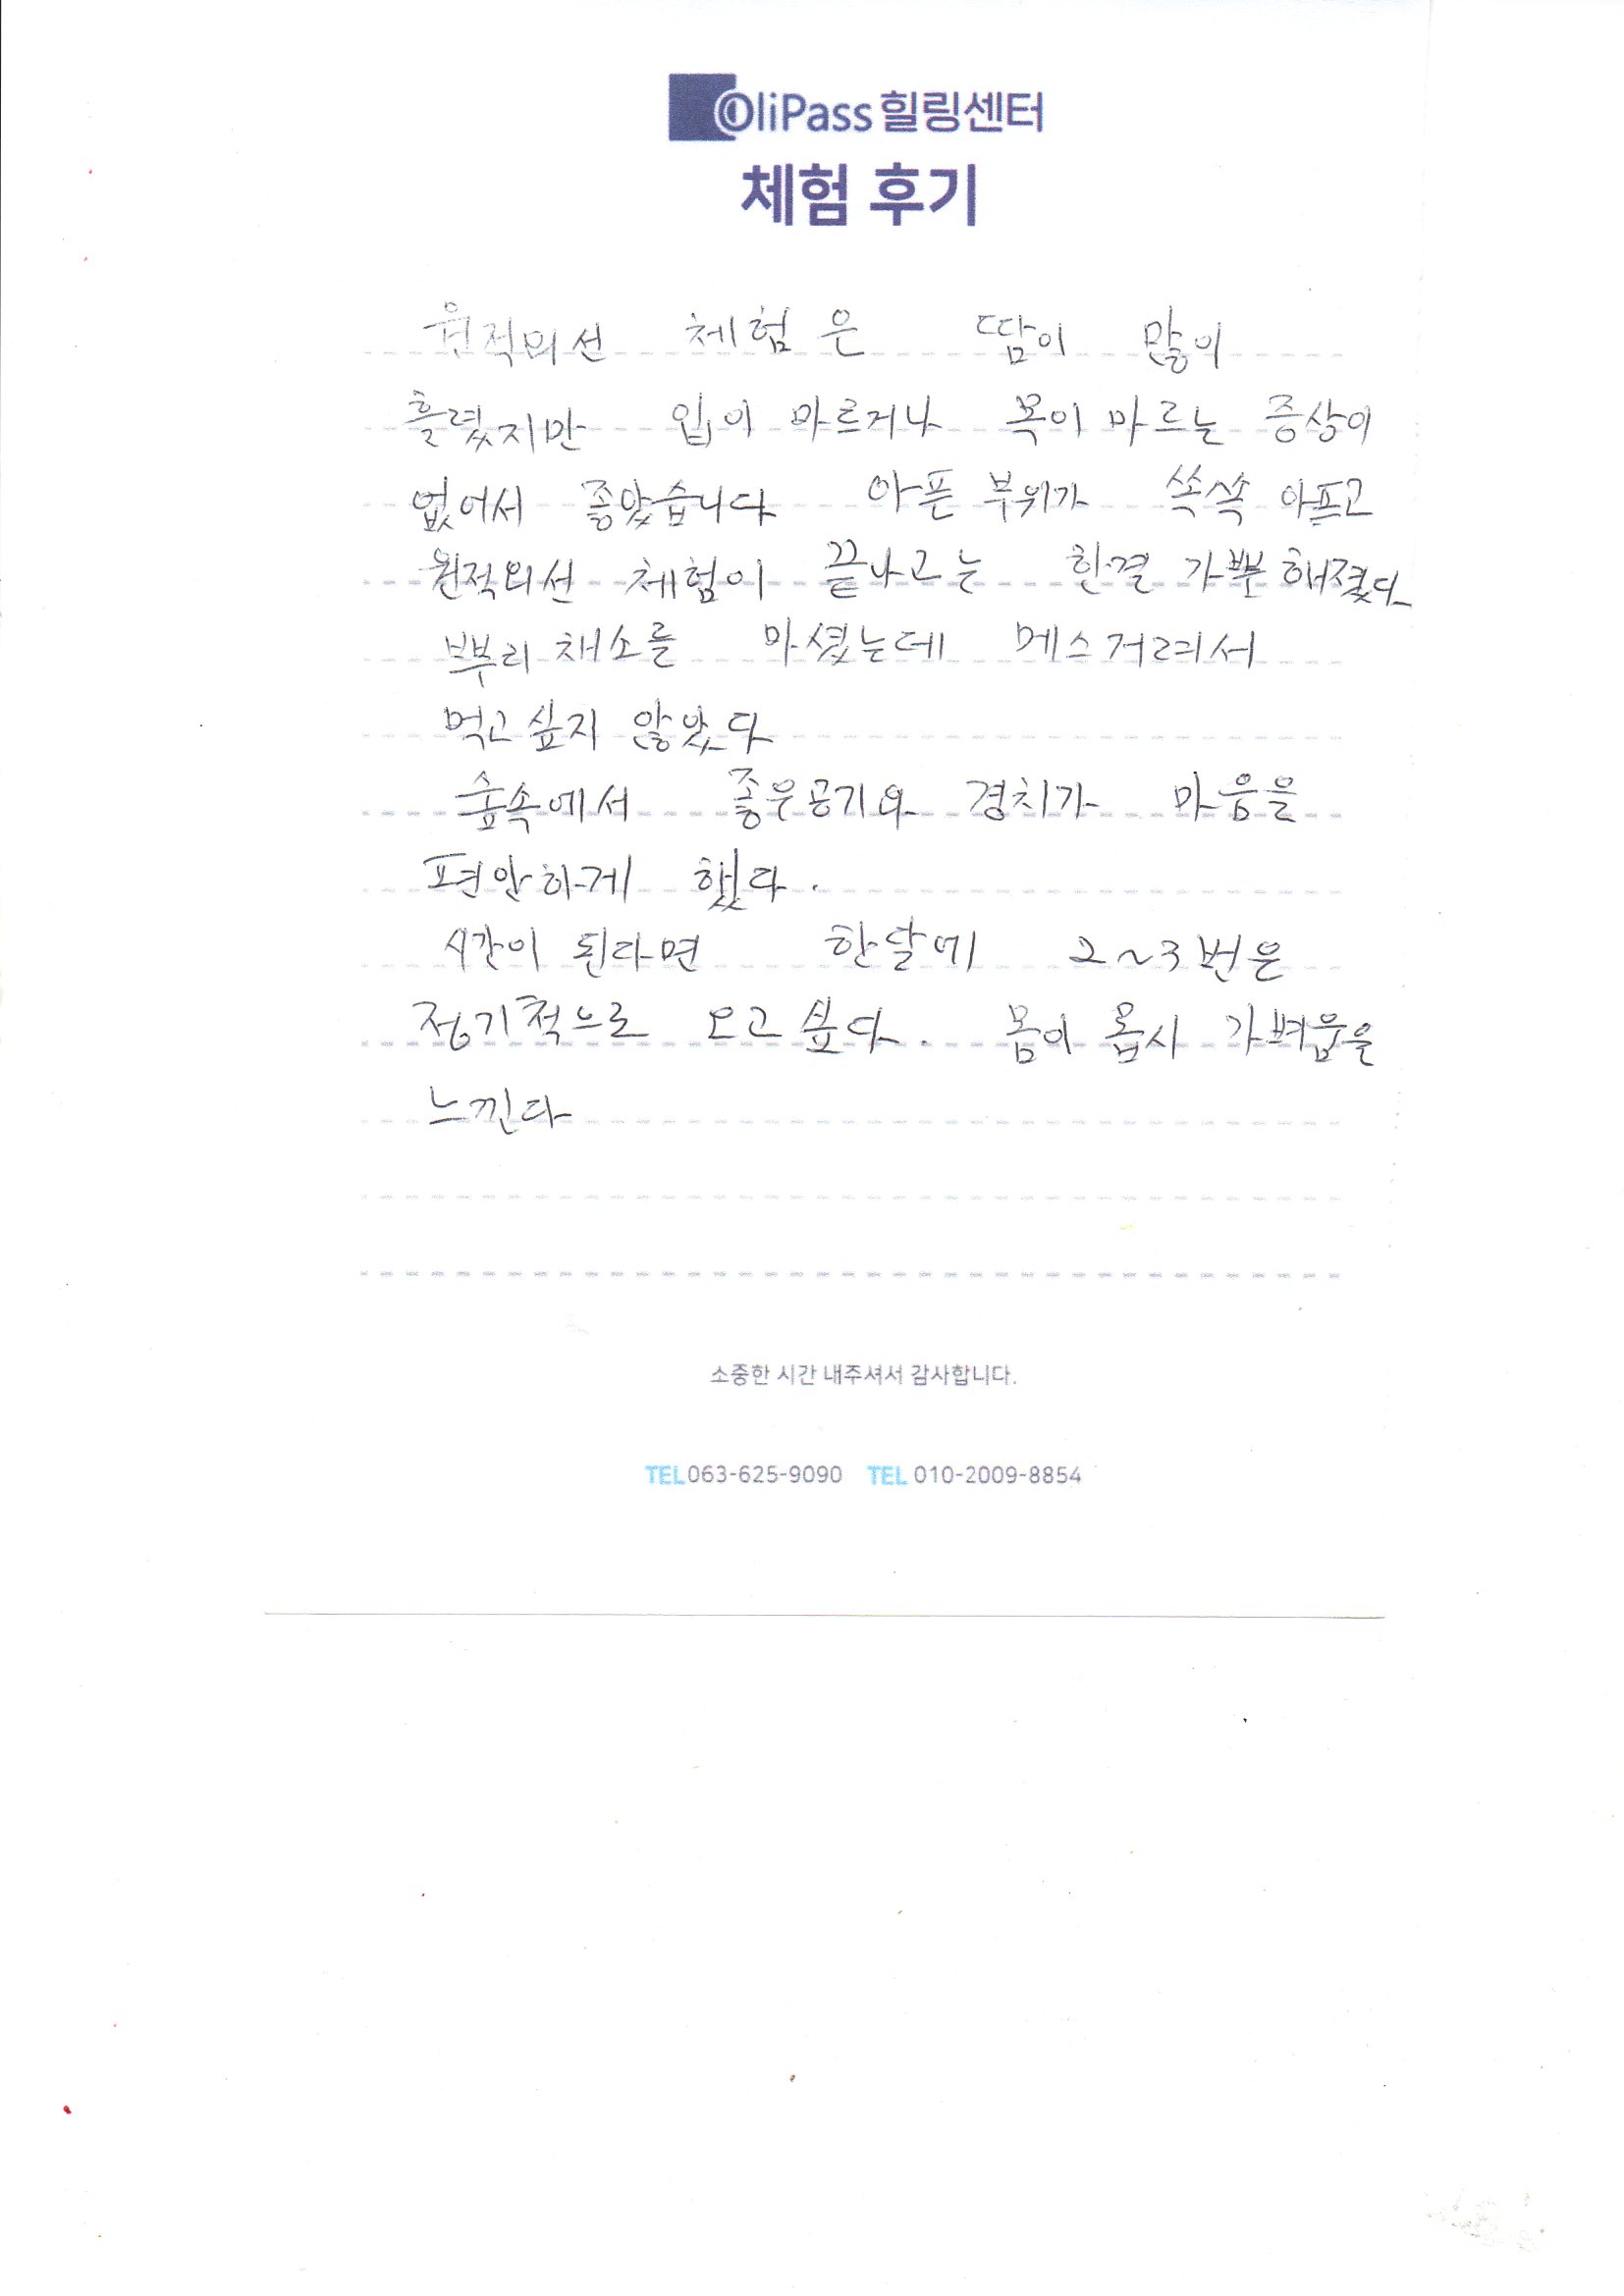 OliPass 힐링센터
체험 후기
원적외선 체험은 땀이 많이
흘렸지만 입이 마르거나 목이 마르는 증상이
없어서 좋았습니다 아픈 부위가 쏙쏙 아프고
원적외선 체험이 끝나고는 한결 가뿐해졌다
뿌리채소를 마셨는데 메스거려서
먹고싶지 않았다
숲속에서 좋우공기와 경치가 마음을
편안하게 했다.
시간이 된다면 한달에 2~3번은
정기적으로 오고싶다. 몸이 몹시 가벼움을
느낀다
소중한 시간 내주셔서 감사합니다.
TEL 063-625-9090 TEL 010-2009-8854